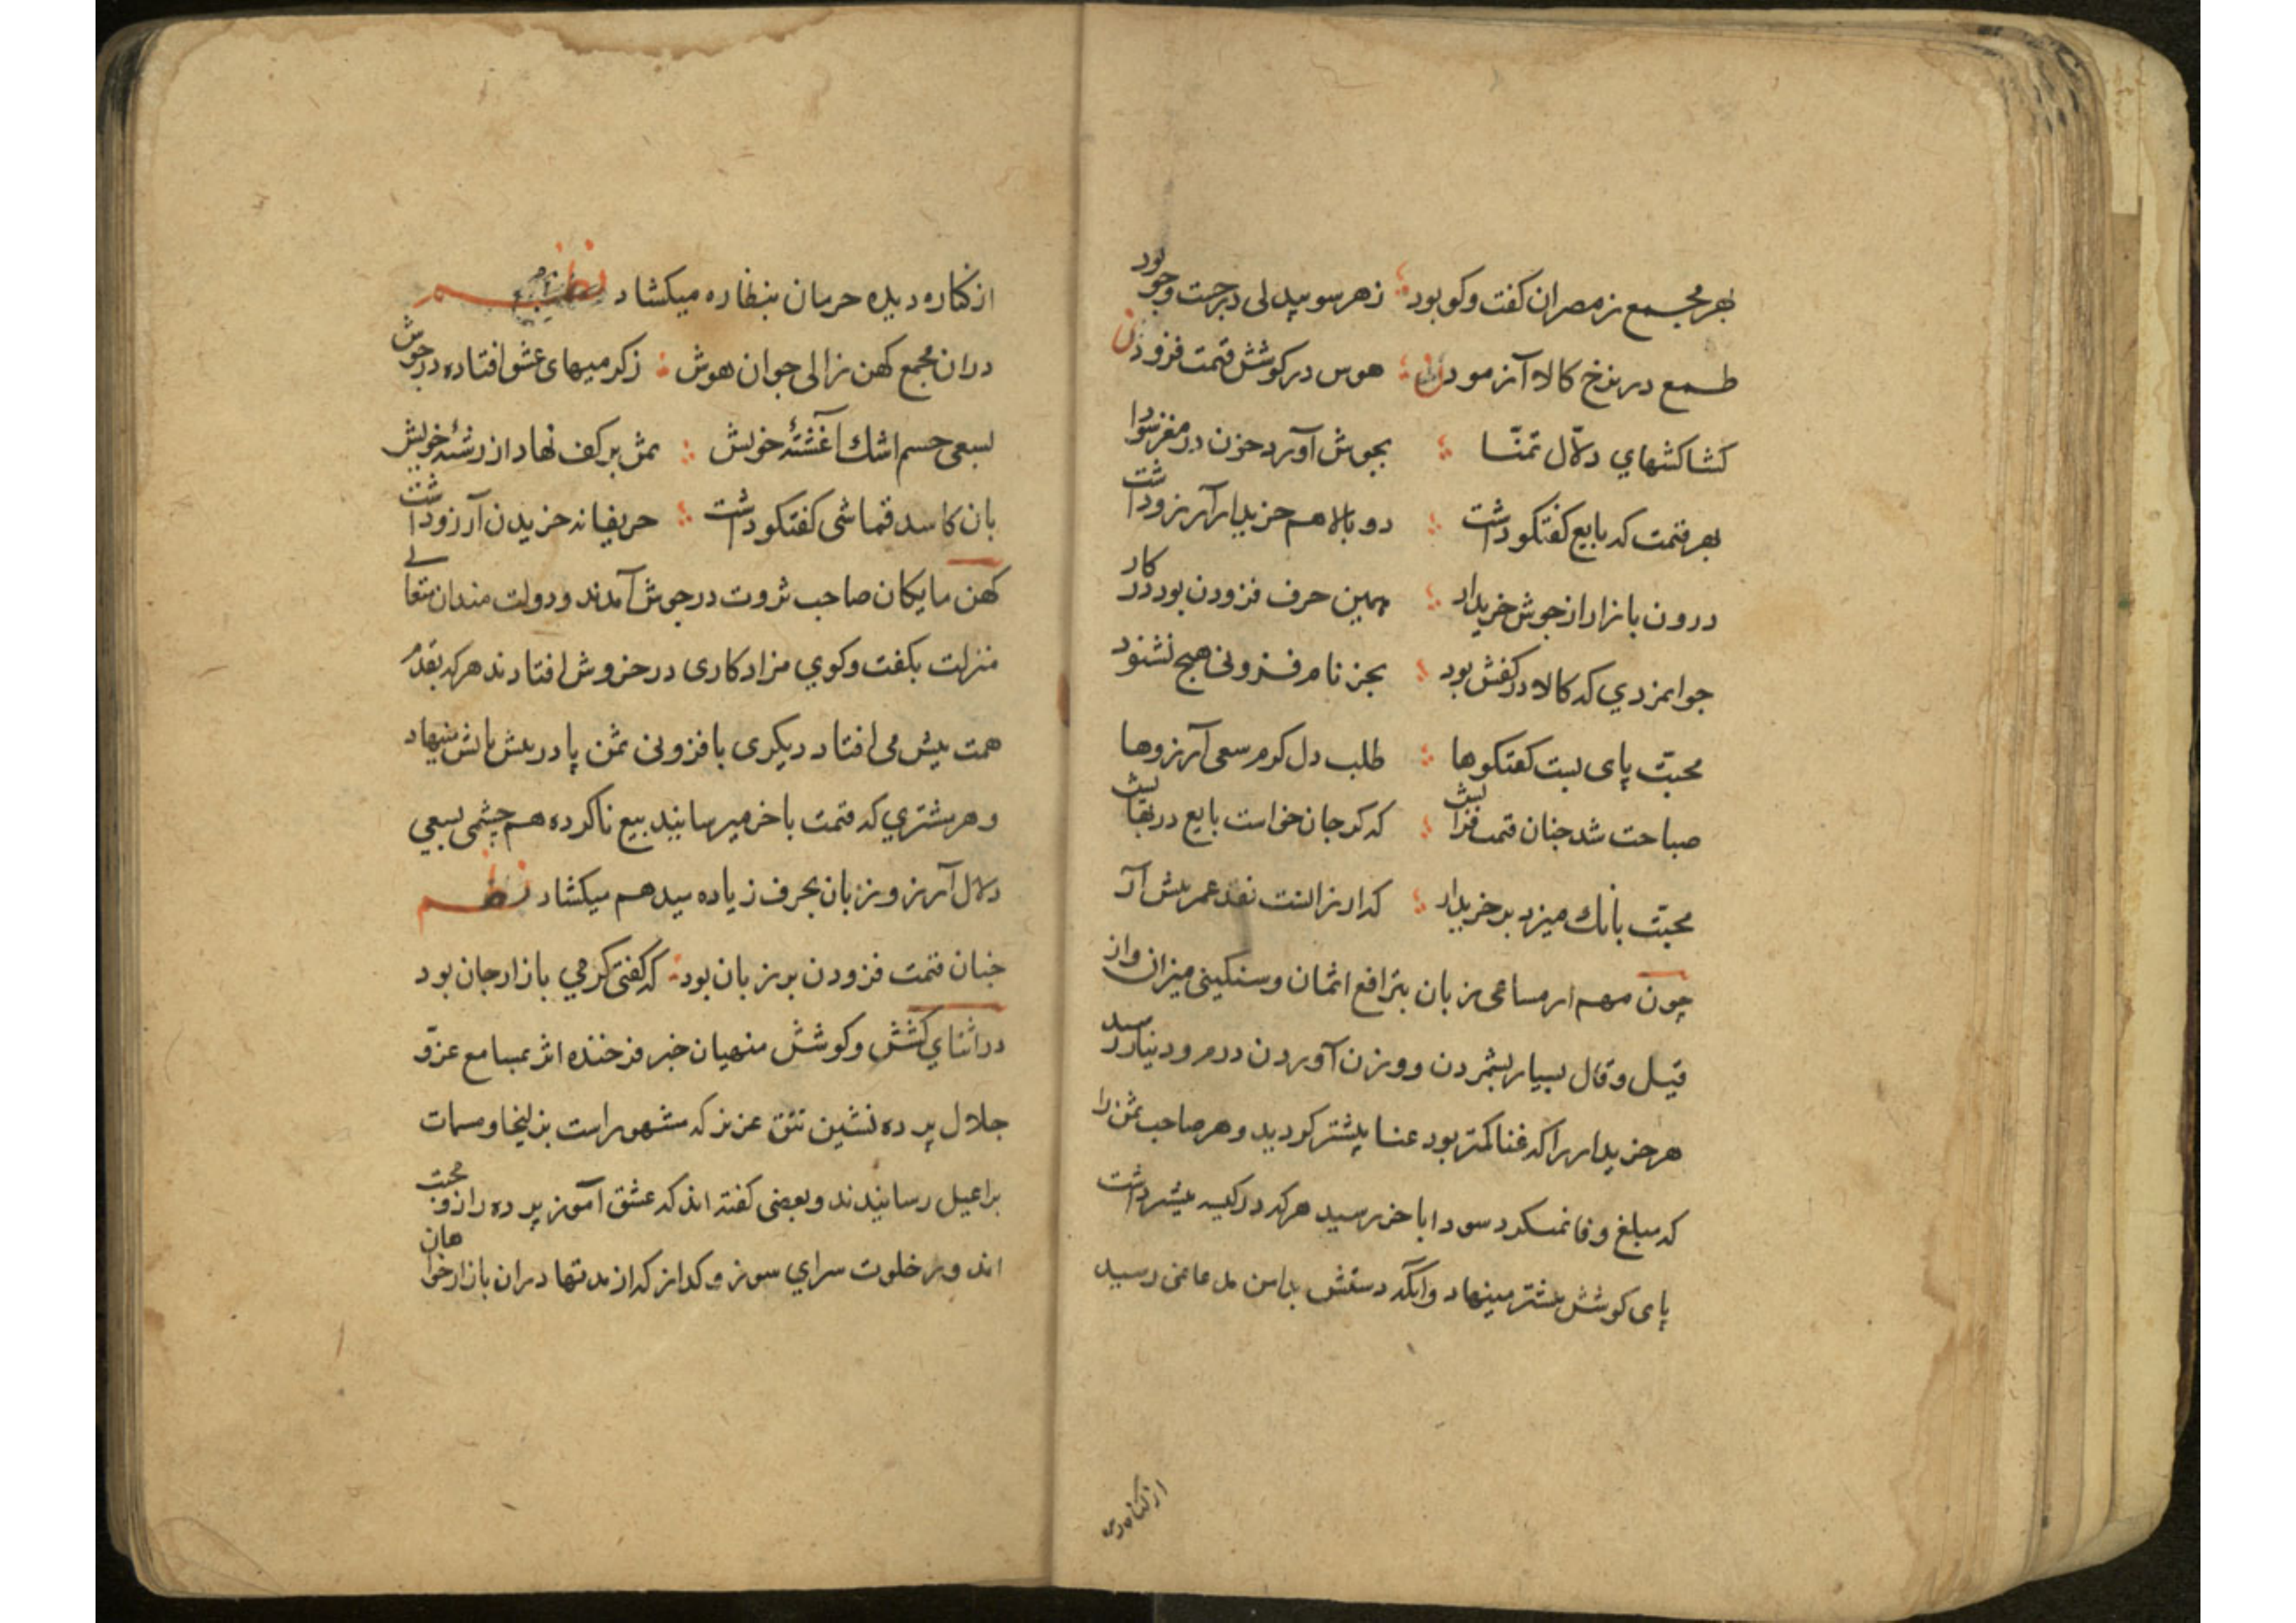 بهر مجمع ز مصران کفت وکو بود زهر سو بیدلی در جست وجو بود
طمع در نرخ کالا آزمودن هوس در کوشش قیمت فزودن
کشاکشهای دلّال تمنّا بجوش آورد خون در مغز سودا
بهر قیمت که بایع کفتکو داشت دو بالا هم خریدار آرزو داشت
درون بازار از جوش خریدار همین حرف فزودن بود در کار
جوانمردی که کالا در کفش بود بجز نام فزونی هیچ نشنود
محبّت پای بست کفتکوها طلب دل کرم سعی آرزوها
صباحت شد جنان قیمت فزایش که کر جان خواست بایع در بهایش
محبّت بانك میزد بر خریدار که ارزانست نقد عمر پیش آر
چون مهم از مساعی زبان بترافع اثمان وسنکینی میزان واز
قیل وقال بسیار بشمردن ووزن آوردن درم ودینار رسید
هر خریدار را که غنا کمتر بود عنا بیشتر کردید وهر صاحب ثمن را
که مبلغ وفا نمیکرد سودا باخر رسید هرکه در کیسه بیشتر داشت
پای کوشش بیشتر مینهاد وآنکه دستش بدامن مدعا نمی رسید
از کناره دیده
از کناره دیده حرمان بنظاره میکشاد نظم
دران مجمع کهن زالی جوان هوش ز کرمیهای عشق افتاده در جوش
بسعی جسم اشك آغشتهٔ خویش ثمن بر کف نهاد از رشتهٔ خویش
بان کاسد قماشی کفتکو داشت حریفانه خریدن آرزو داشت
کهن مایکان صاحب ثروت در جوش آمدند ودولت مندان متعالی
منزلت بکفت وکوی مزاد کاری در خروش افتادند هرکه بقدم
همت پیش می افتاد دیکری بافزونی ثمن پا در پیش پایش مینهاد
وهر مشتری که قیمت باخر میرسانید بیع ناکرده هم چشمی بسعی
دلال آرزو زبان بحرف زیاده میدهم میکشاد نظم
جنان قیمت فزودن بر زبان بود که کفتی کرمی بازار جان بود
در اثنای کشش وکوشش منهیان خبر فرخنده اثر بمسامع عزّ و
جلال پرده نشین تتق عزیز که مشهور است بزلیخا ومسمات
براعیل رسانیدند وبعضی کفته اند که عشق آموز پرده راز ومحبت
اند وز خلوت سرای سوز وکداز که از مدتها دران بازار خواهان